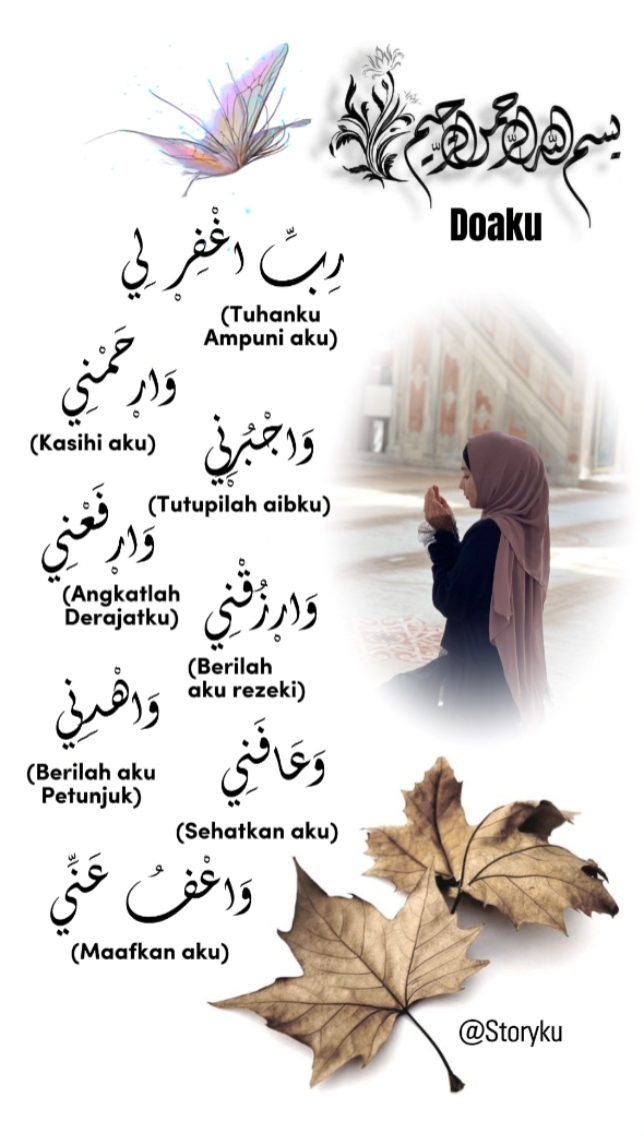 بسم الله الرحمن الرحيم
Doaku
رِبِّ اغْفِرْ لِي
(Tuhanku
Ampuni aku)
وَارْحَمْنِي
(Kasihi aku)
وَاجْبُرْنِي
(Tutupilah aibku)
وَارْفَعْنِي
(Angkatlah
Derajatku)
وَارْزُقْنِي
(Berilah
aku rezeki)
وَاهْدِنِي
(Berilah aku
Petunjuk)
وَعَافَنِي
(Sehatkan aku)
وَاعْفُ عَنِّي
(Maafkan aku)
@Storyku